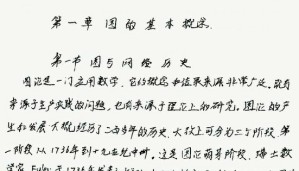 第一章 图的基本概念
第一节 图与网络历史
图论是一门应用数学，它的概念和结果来源非常广泛，既有
来源于生产实践的问题，也有来源于理论上的研究。图论的产
生和发展大概经历了二百多年的历史，大致上可分为三个阶段，第
一阶段从1736年到十九世纪中叶。这是图论萌芽阶段，瑞士数
学家Euler于1736年